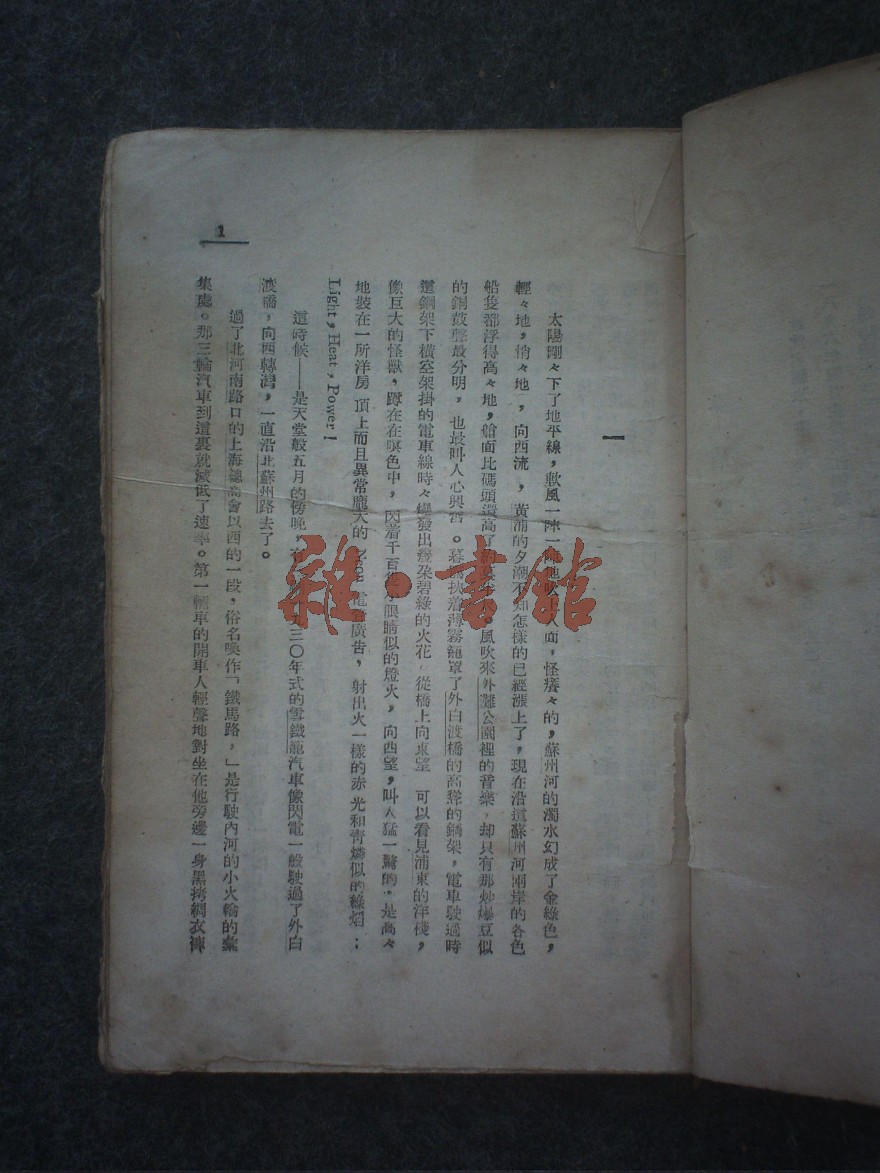 1
一
太陽剛々下了地平線，軟風一陣一陣地吹上人面，怪癢々的，蘇州河的濁水幻成了金綠色，
輕々地，悄々地，向西流，黃浦的夕潮不知怎樣的已經漲上了，現在沿這蘇州河兩岸的各色
船隻都浮得高々地，艙面比碼頭還高了 風吹來外灘公園裡的音樂，却只有那炒爆豆似
的銅鼓聲最分明，也最叫人心興奮。暮靄挾着薄霧籠罩了外白渡橋的高聳的鋼架，電車駛過時
這鋼架下橫空架掛的電車線時々爆發出幾朶碧綠的火花，從橋上向東望 可以看見浦東的洋棧，
像巨大的怪獸，蹲在在暝色中，閃着千百 眼睛似的燈火，向西望，叫人猛一驚的，是高々
地裝在一所洋房 頂上而且異常龐大的 電 廣告，射出火一樣的赤 光和青燐似的綠焰；
Light，Heat，Power！
這時候——是天堂般五月的傍晚， 三〇年式的雪鐵籠汽車像閃電一般駛過了外白
渡橋，向西轉灣，一直沿北蘇州路去了。
過了北河南路口的上海總商會以西的一段，俗名喚作「鐵馬路，」是行駛內河的小火輪的彙
集處。那三輪汽車到這裏就減低了速率。第一輛車的開車人輕聲地對坐在他旁邊一身黑拷綢衣褲
雜·書館